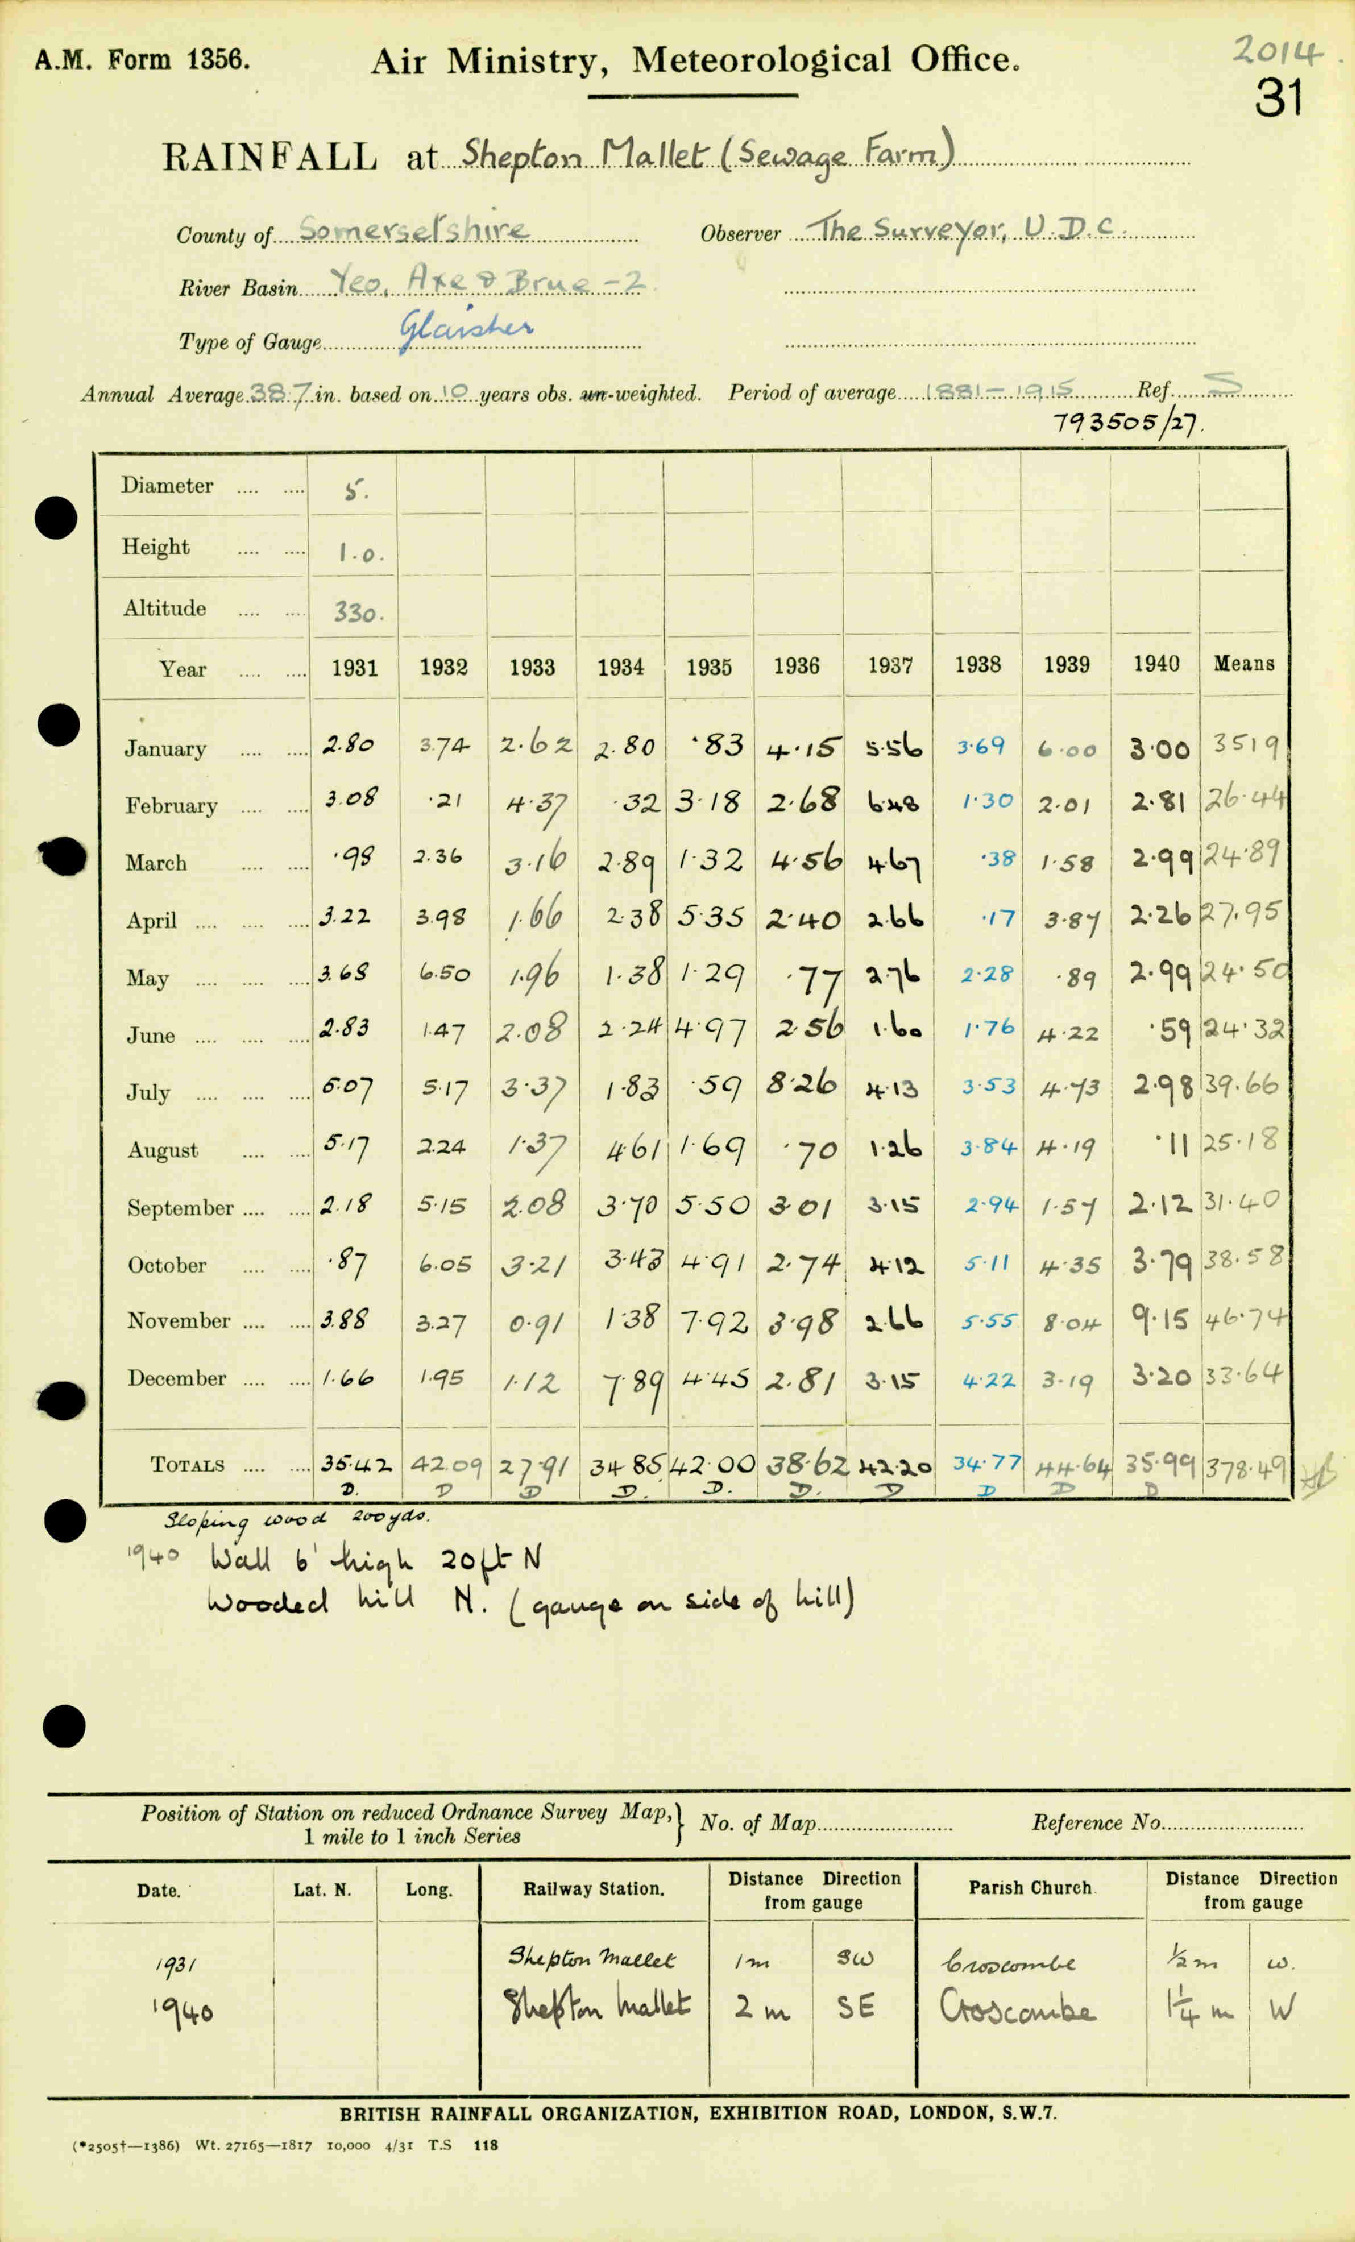 A.M. Form 1356.
Air Ministry, Meteorological Office.
2014.
31
RAINFALL at Shepton Mallet (Sewage Farm)
County of Somersetshire Observer The Surveyor, U.D.C.
River Basin Yeo, Axe & Brue -2.
Type of Gauge Glaisher
Annual Average 38.7 in. based on 10 years obs. un-weighted. Period of average 1881-1915 Ref. S
793505/27.
Diameter .... .... 5.
Height .... .... 1.0.
Altitude .... .... 330.
Year .... .... 1931 1932 1933 1934 1935 1936 1937 1938 1939 1940 Means
January .... .... 2.80 3.74 2.62 2.80 .83 4.15 5.56 3.69 6.00 3.00 3519
February .... .... 3.08 .21 4.37 .32 3.18 2.68 6.48 1.30 2.01 2.81 26.44
March .... .... .98 2.36 3.16 2.89 1.32 4.56 4.67 .38 1.58 2.99 24.89
April .... .... .... 3.22 3.98 1.66 2.38 5.35 2.40 2.66 .17 3.87 2.26 27.95
May .... .... .... 3.68 6.50 1.96 1.38 1.29 .77 2.76 2.28 .89 2.99 24.50
June .... .... .... 2.83 1.47 2.08 2.24 4.97 2.56 1.60 1.76 4.22 .59 24.32
July .... .... .... 5.07 5.17 3.37 1.83 .59 8.26 4.13 3.53 4.73 2.98 39.66
August .... .... 5.17 2.24 1.37 4.61 1.69 .70 1.26 3.84 4.19 .11 25.18
September .... .... 2.18 5.15 2.08 3.70 5.50 3.01 3.15 2.94 1.57 2.12 31.40
October .... .... .87 6.05 3.21 3.43 4.91 2.74 4.12 5.11 4.35 3.79 38.58
November .... .... 3.88 3.27 0.91 1.38 7.92 3.98 2.66 5.55 8.04 9.15 46.74
December .... .... 1.66 1.95 1.12 7.89 4.45 2.81 3.15 4.22 3.19 3.20 33.64
TOTALS .... .... 35.42 42.09 27.91 34.85 42.00 38.62 42.20 34.77 44.64 35.99 378.49
D. D D D. D. D. D D D D
Sloping wood 200yds.
1940 Wall 6' high 20ft N
Wooded hill N. (gauge on side of hill)
Position of Station on reduced Ordnance Survey Map, } No. of Map Reference No.
1 mile to 1 inch Series
Date. Lat. N. Long. Railway Station. Distance Direction from gauge Parish Church Distance Direction from gauge
1931 Shepton Mallet 1m SW Croscombe ½m W.
1940 Shepton Mallet 2 m SE Croscombe 1¼ m W
BRITISH RAINFALL ORGANIZATION, EXHIBITION ROAD, LONDON, S.W.7.
(*2505†—1386) Wt. 27165—1817 10,000 4/31 T.S 118